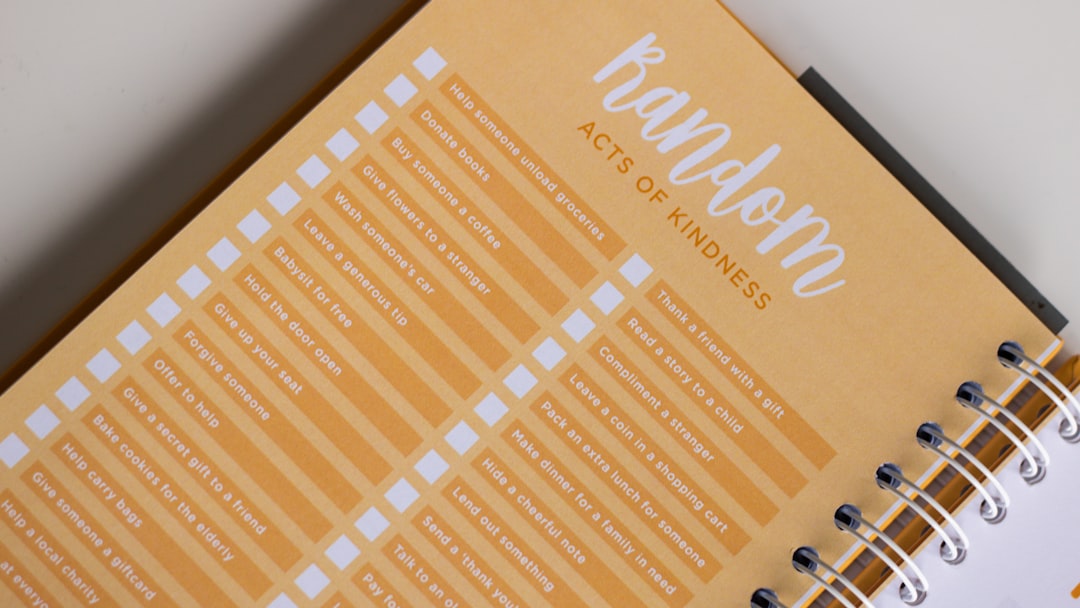 Random
ACTS OF KINDNESS
Help someone unload groceries
Donate books
Buy someone a coffee
Give flowers to a stranger
Wash someone's car
Leave a generous tip
Babysit for free
Hold the door open
Give up your seat
Forgive someone
Offer to help
Give a secret gift to a friend
Bake cookies for the elderly
Help carry bags
Give someone a giftcard
Help a local charity
at
Thank a friend with a gift
Read a story to a child
Compliment a stranger
Leave a coin in a shopping cart
Pack an extra lunch for someone
Make dinner for a family in need
Hide a cheerful note
Lend out something
Send a 'thank you'
Talk to an
Pay